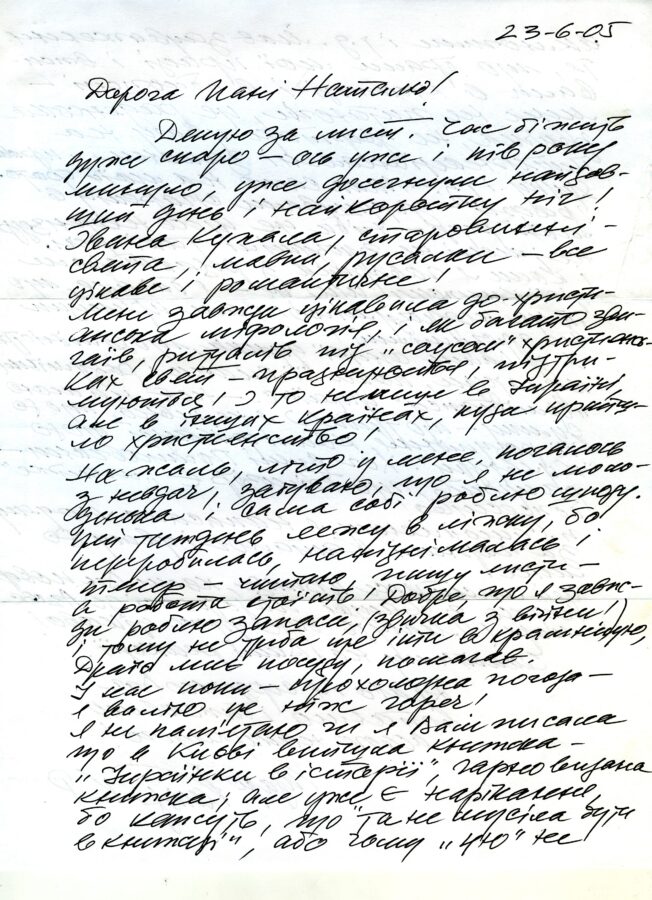 23-6-05
Дорога Пані Наталю!
Дякую за лист. Час біжить
дуже скоро – ось уже і пів року
минуло, уже досягнули найдов-
щий день і найкоротку ніч!
Івана Купала, старовинні –
свята, мавки, русалки – все
цікаве і романтичне!
Мене завжди цікавила до-христи-
янська мітологія, і як багато зви-
чаїв, ритуалів під "соусом" християнсь-
ких свят – празнуються, підтри-
муються! І то не лише в Україні,
але в інших країнах, куди прийш-
ло християнство!
На жаль, літо у мене, почалось
з невдач, забуваю, що я не моло-
денька і сама собі роблю шкоду.
Цей тиждень лежу в ліжку, бо
переробилась, напіднімалась і
тепер – читаю, пишу листи –
а робота стоїть! Добре, що я завж-
ди роблю запаси, (звичка з війни!)
і тому не треба ще іти в крамницю,
миє посуду, помагає.
У нас поки – прохолодна погода –
я волію це ніж гаряч!
Я не памʼятаю чи я Вам писала
що в Києві вийшла книжка –
"Українки в історії", гарно видана
книжка; але уже є нарікання,
бо кажуть, що "та не мусіла бути
в книжці", або чому "цю" не